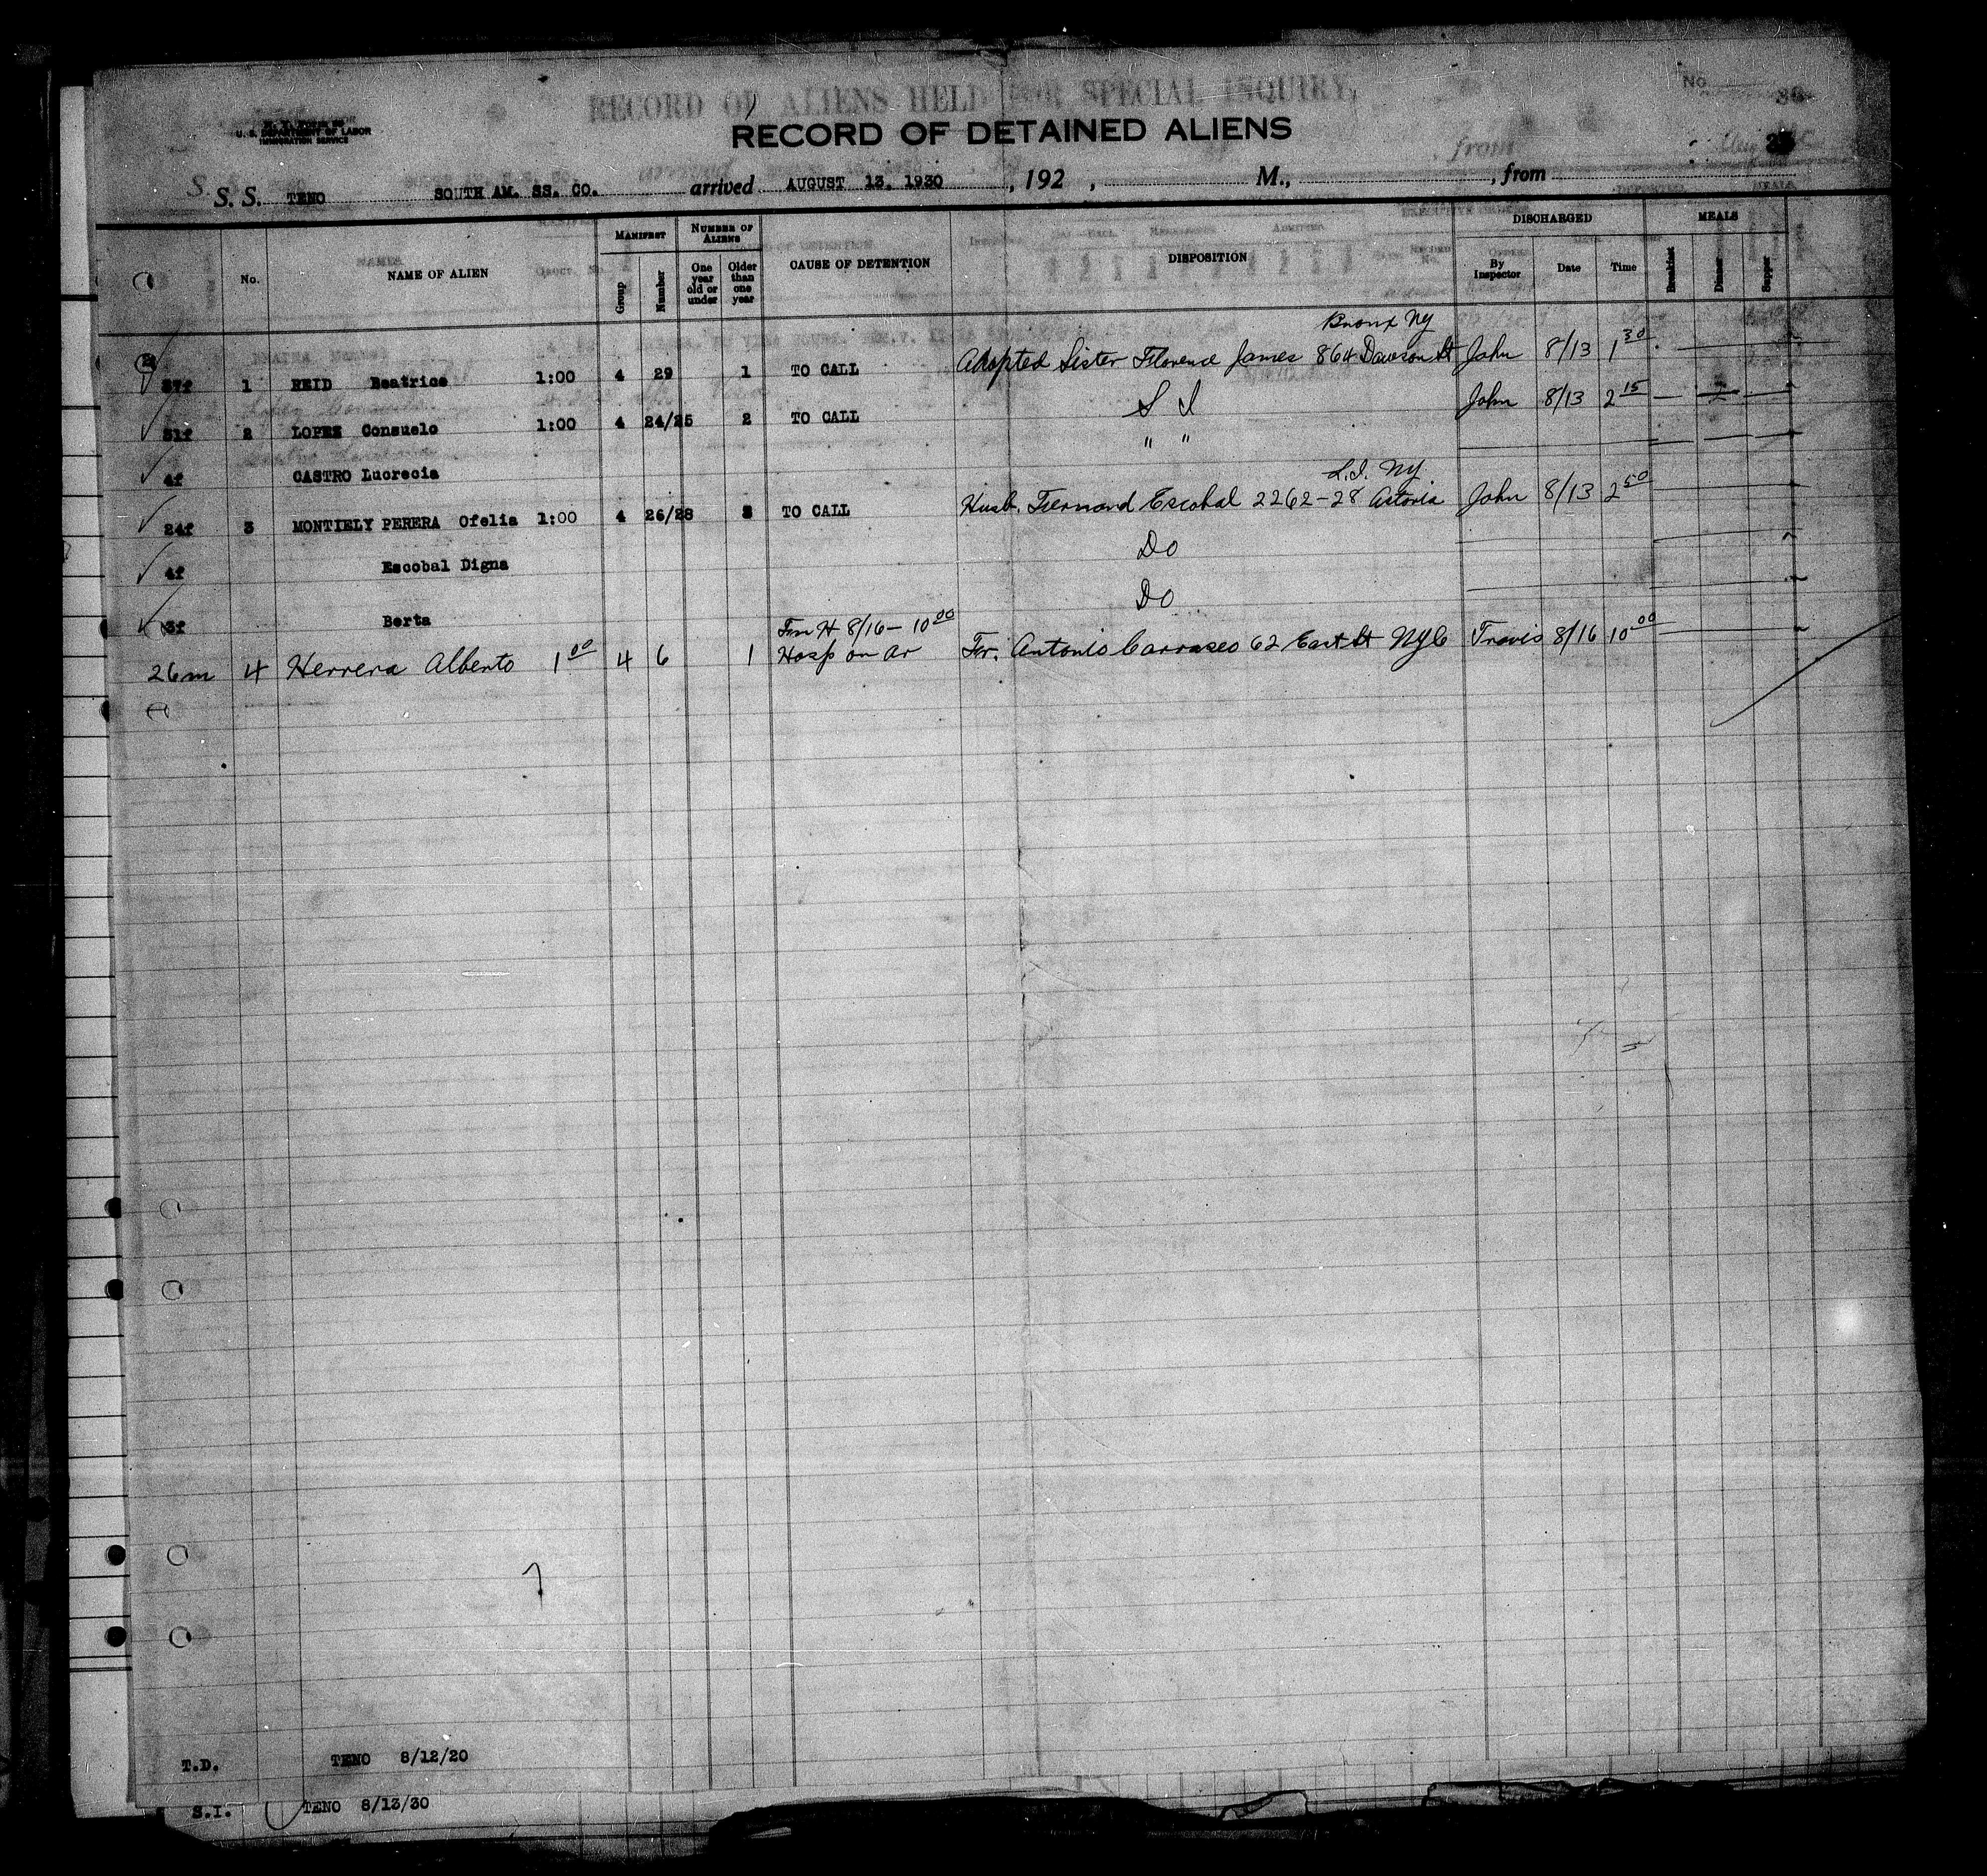 RECORD OF ALIENS HELD FOR SPECIAL INQUIRY,
No. 86
U. S. DEPARTMENT OF LABOR
IMMIGRATION SERVICE
RECORD OF DETAINED ALIENS
S. S. TENO SOUTH AM. SS. CO. arrived AUGUST 13, 1930, 192 , M., , from
No. NAME OF ALIEN MANIFEST Group Number NUMBER OF ALIENS One year old or under Older than one year CAUSE OF DETENTION DISPOSITION DISCHARGED By Inspector Date Time MEALS Breakfast Dinner Supper
Bronx NY
37f 1 REID Beatrice 1:00 4 29 1 TO CALL Adopted Sister Florence James 864 Dawson St John 8/13 1 30
31f 2 LOPEZ Consuelo 1:00 4 24/25 2 TO CALL S I John 8/13 2 15
4f CASTRO Lucrecia " "
L.I. NY
24f 3 MONTIELY PERERA Ofelia 1:00 4 26/28 3 TO CALL Husb. Fernand Escobal 2262-28 Astoria John 8/13 2 50
4f Escobal Digna Do
3f Berta Do
Fm H 8/16 - 10 00
26m 4 Herrera Alberto 1 00 4 6 1 Hosp on ar Fr. Antonio Carrasco 62 East St NYC Travis 8/16 10 00
T.D. TENO 8/12/20
S.I. TENO 8/13/30